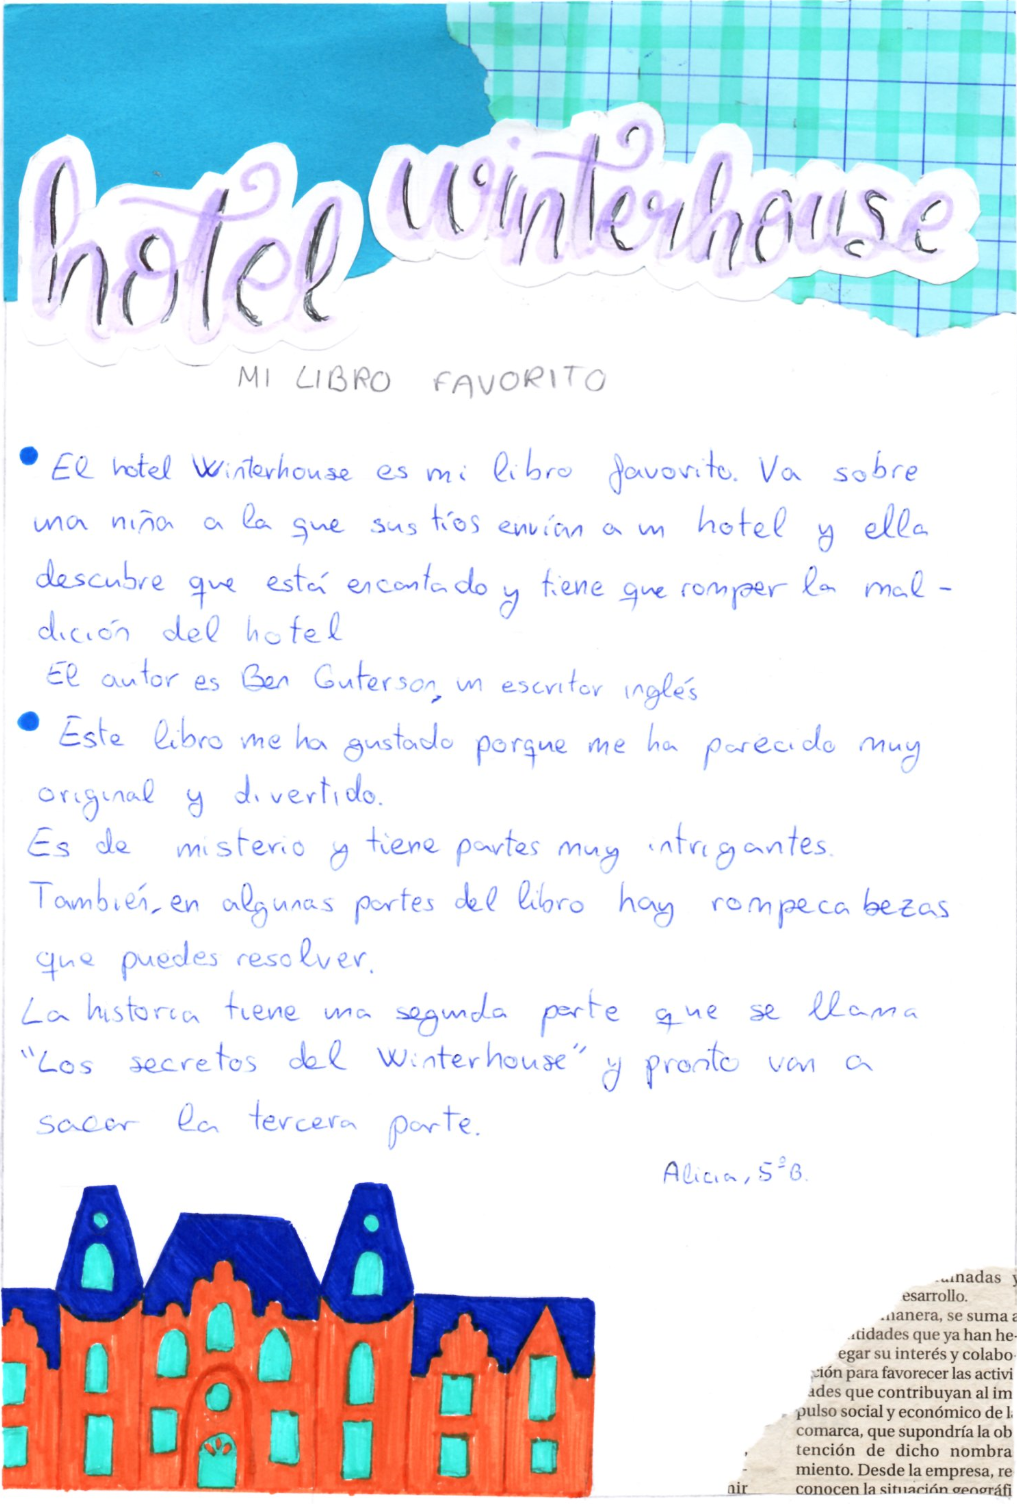 hotel winterhouse
MI LIBRO FAVORITO
El hotel Winterhouse es mi libro favorito. Va sobre
una niña a la que sus tíos envían a un hotel y ella
descubre que está encantado y tiene que romper la mal-
dición del hotel
El autor es Ben Guterson, un escritor inglés
Este libro me ha gustado porque me ha parecido muy
original y divertido.
Es de misterio y tiene partes muy intrigantes.
También, en algunas partes del libro hay rompecabezas
que puedes resolver.
La historia tiene una segunda parte que se llama
"Los secretos del Winterhouse" y pronto van a
sacar la tercera parte.
Alicia, 5ºB.
madas y
esarrollo.
manera, se suma a
tidades que ya han he-
egar su interés y colabo-
ción para favorecer las activi
ades que contribuyan al im
pulso social y económico de l
comarca, que supondría la ob
tención de dicho nombra
miento. Desde la empresa, re
nir conocen la situación geográfi